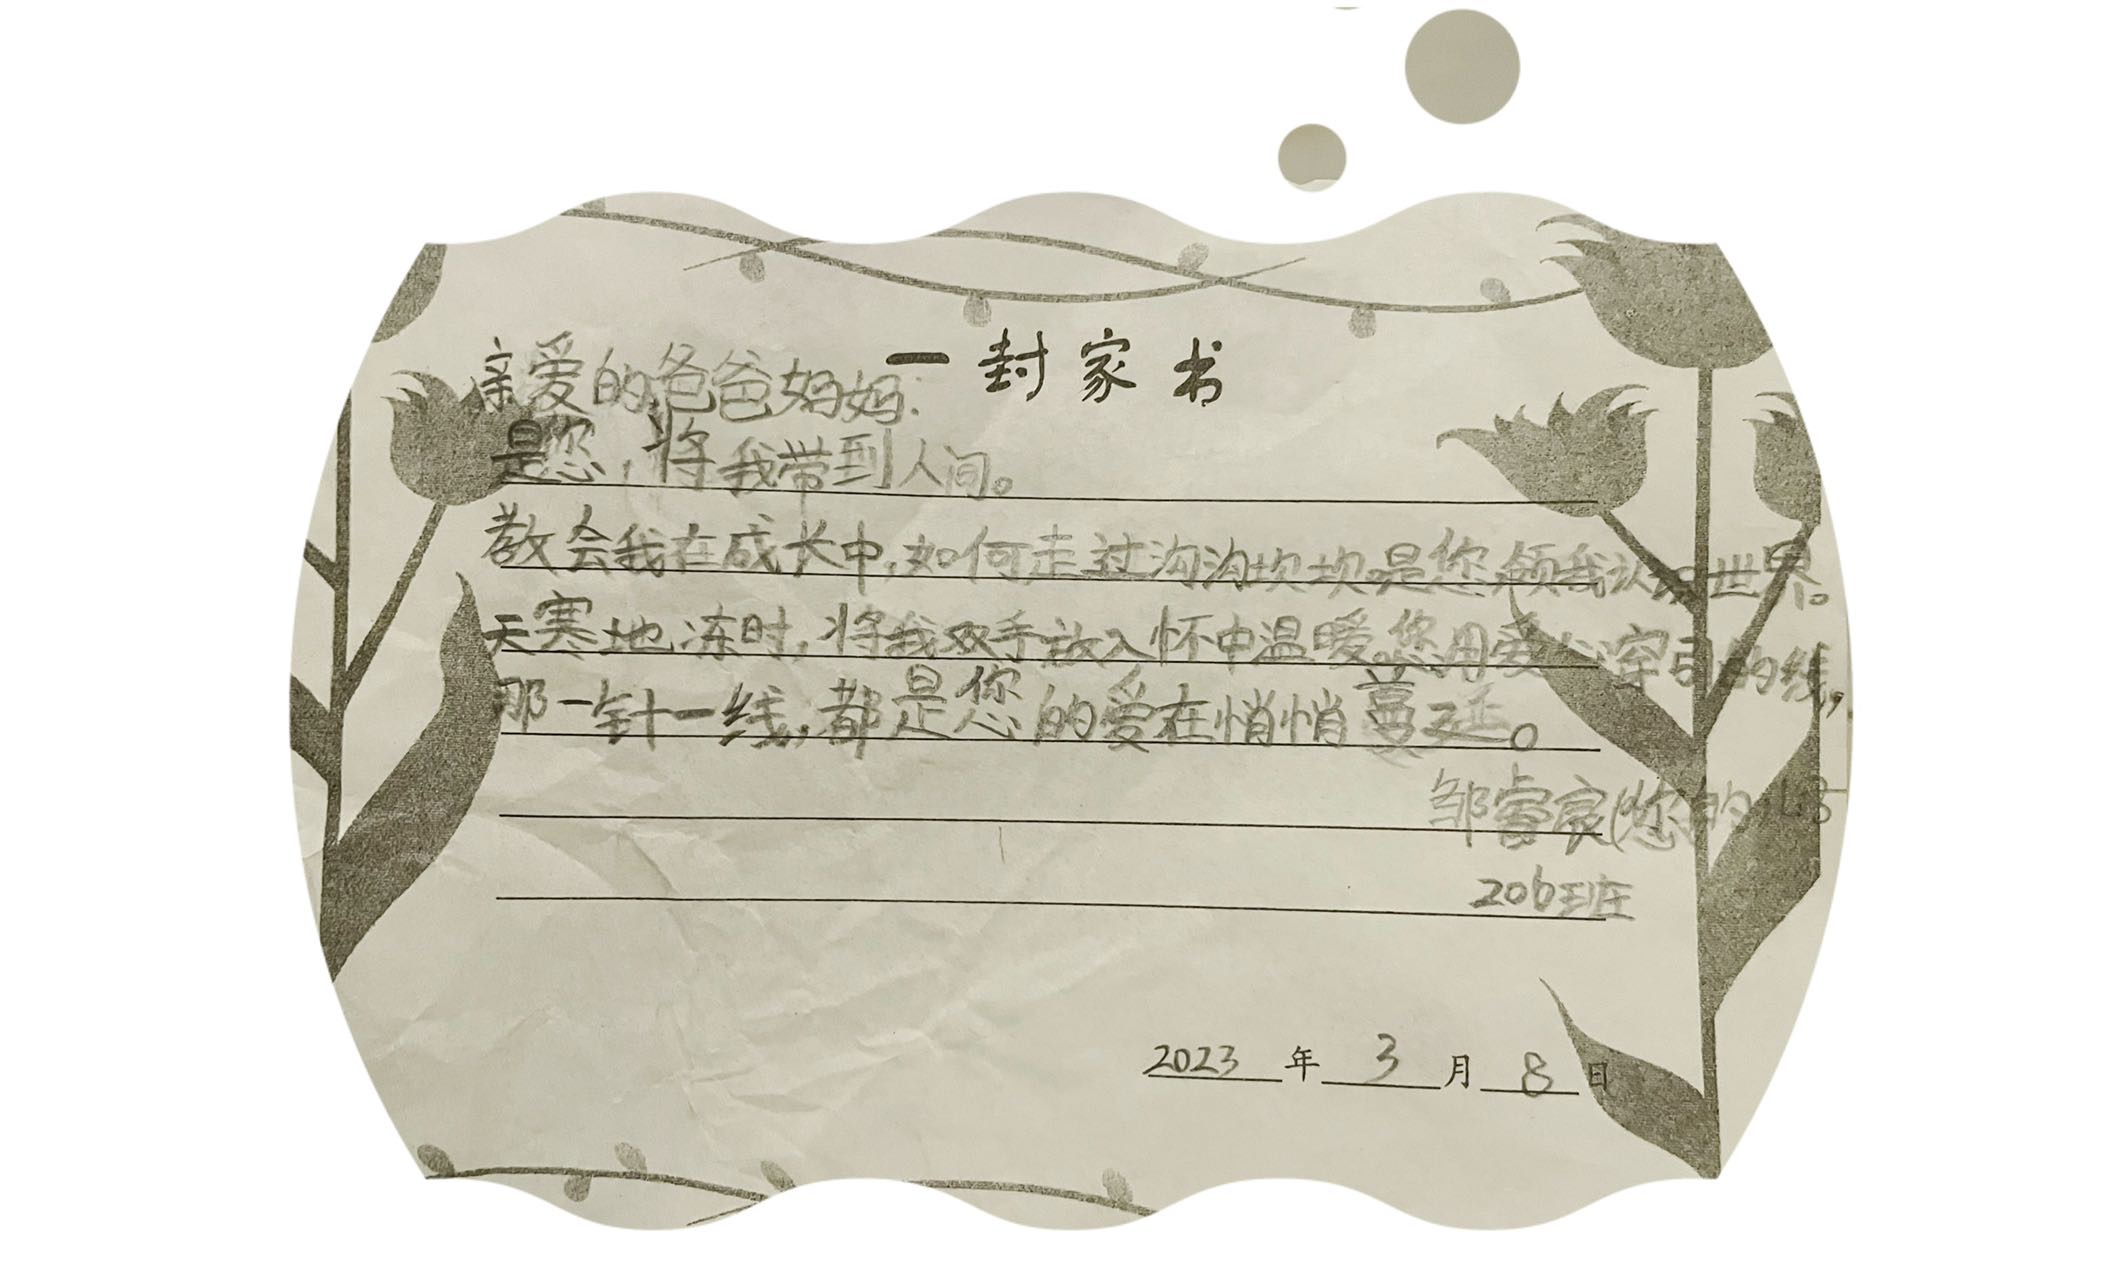 一封家书
亲爱的爸爸妈妈:
是您,将我带到人间。
教会我在成长中,如何走过沟沟坎坎.是您领我认知世界。
天寒地冻时,将我双手放入怀中温暖.您用爱心穿引的线,
那一针一线,都是您的爱在悄悄蔓延。
邹睿宸(您的
206班
2023年3月8日